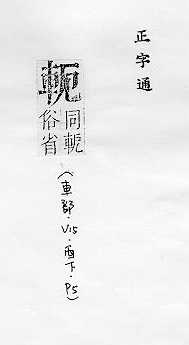 正字通
同輗
俗省
(車部·V15·酉下·P5)